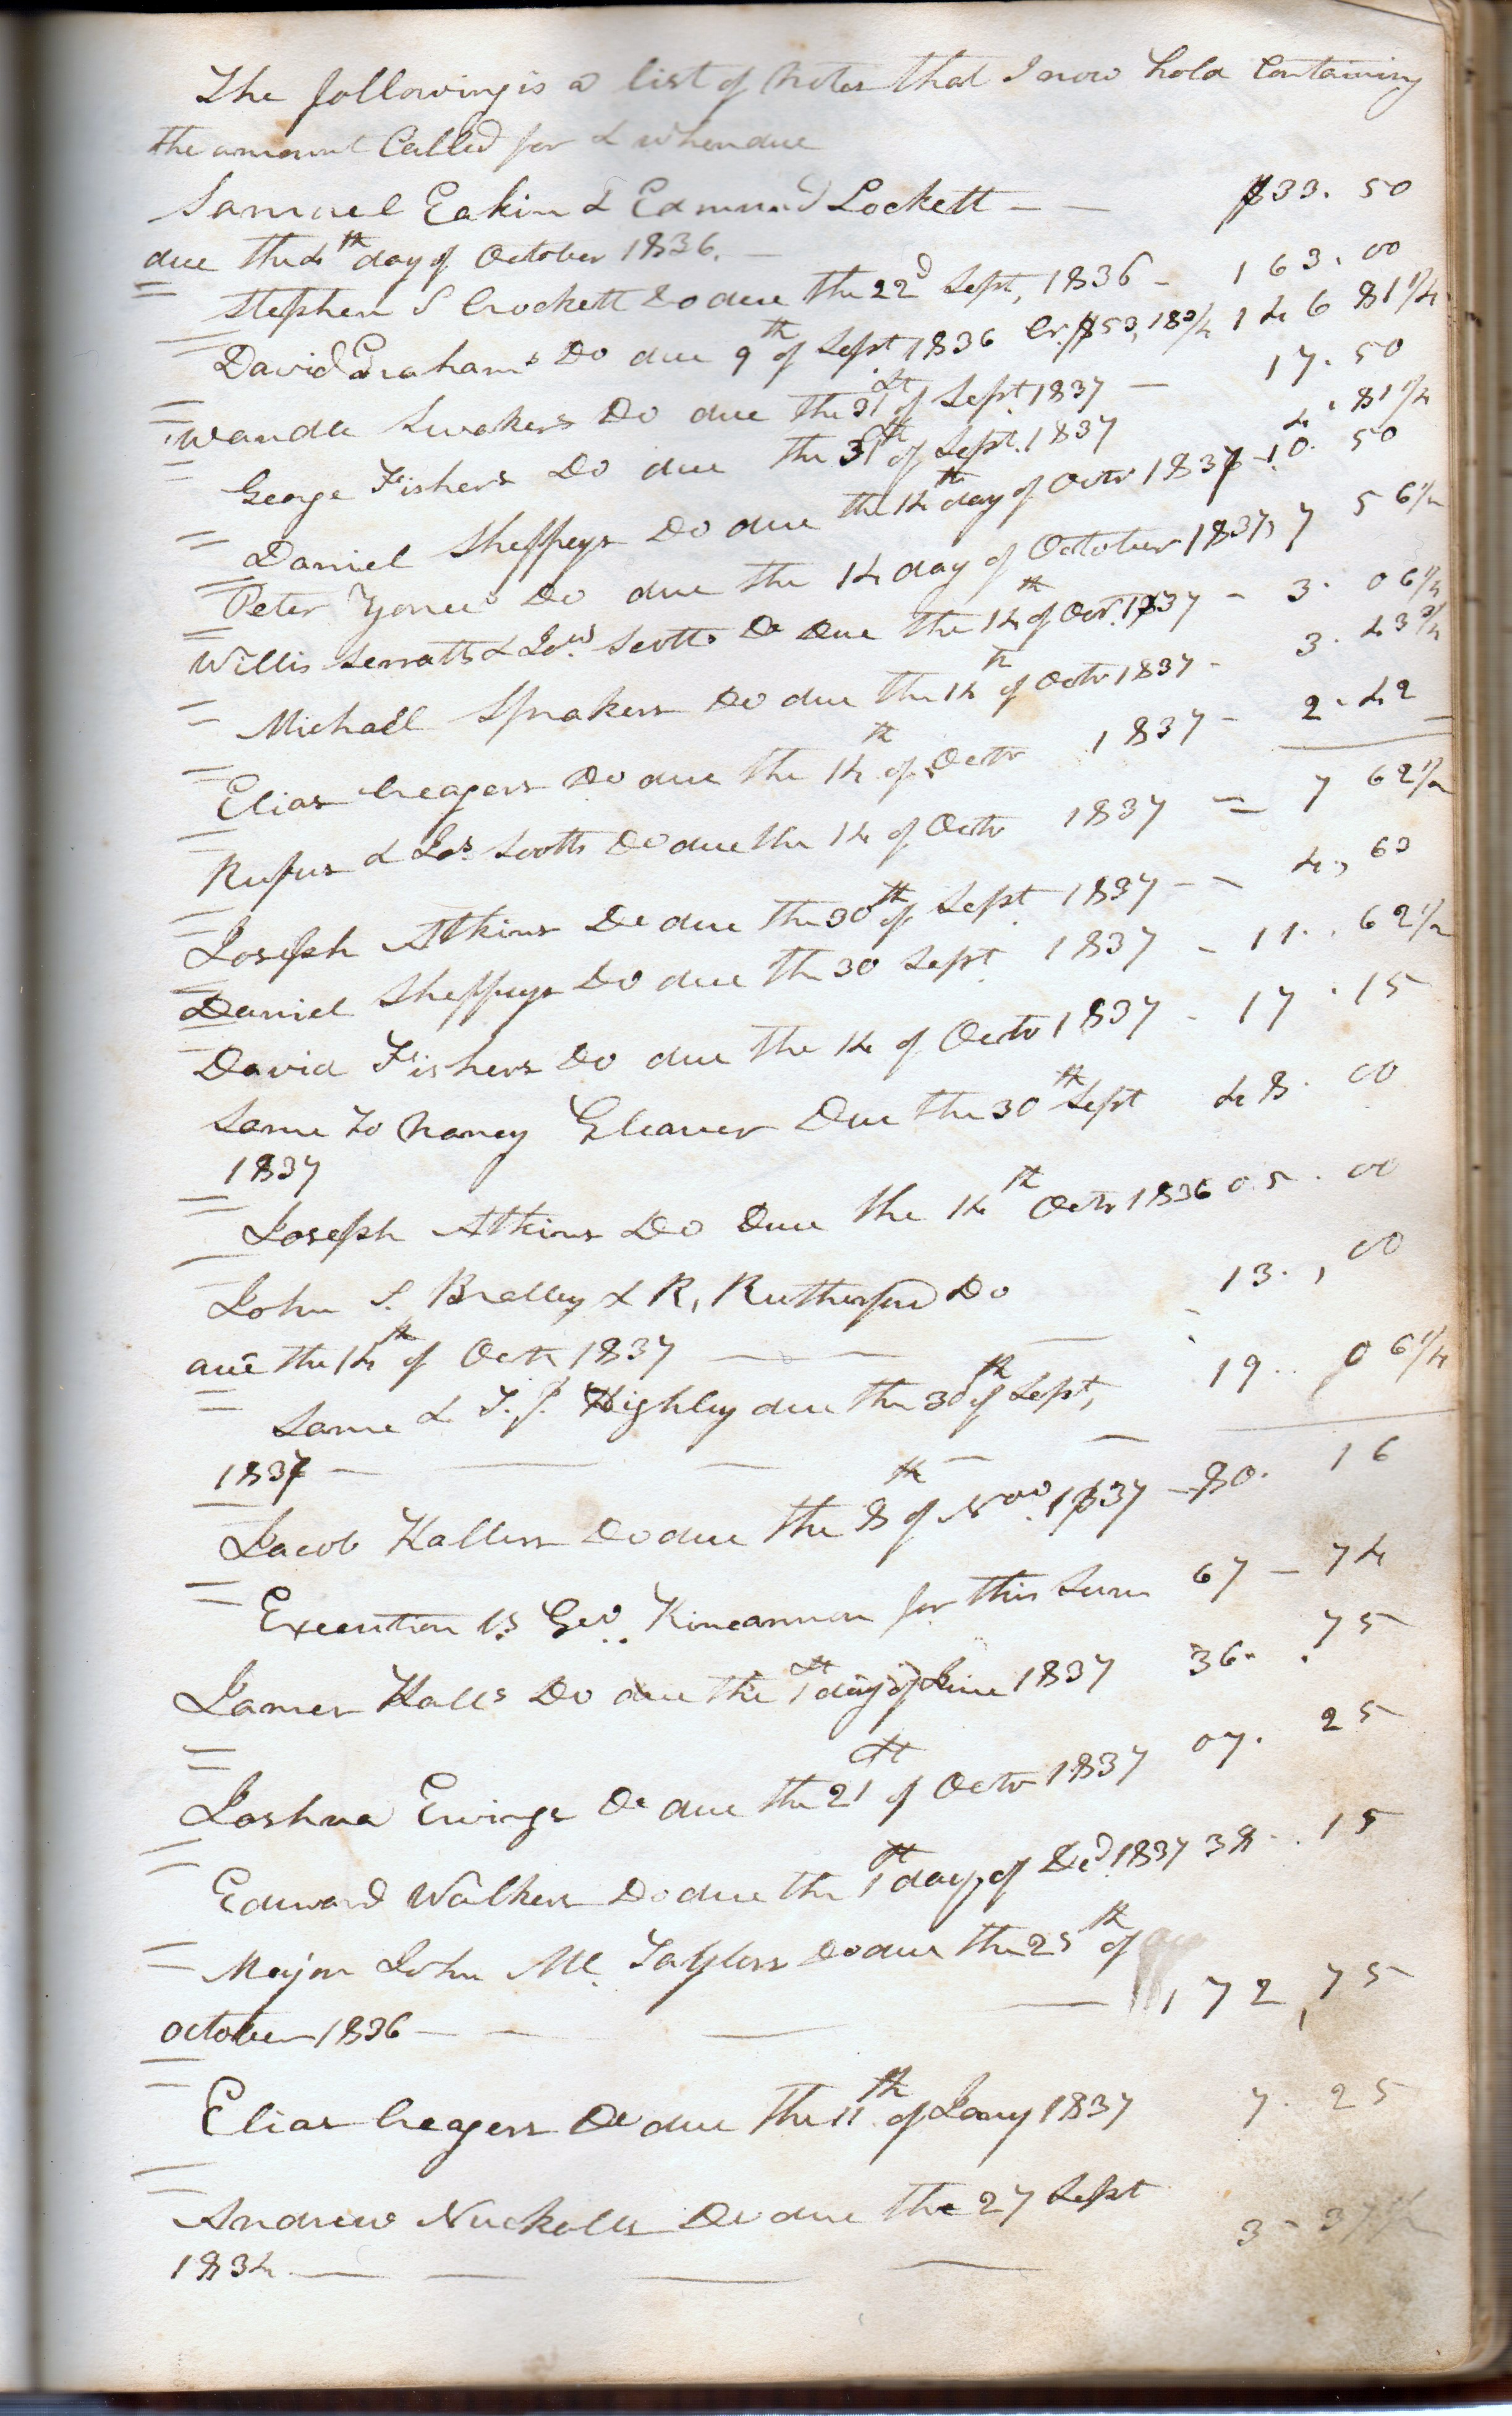 The following is a list of Notes that I now hold Containing
the amount Called for & when due
Samuel Eakin & Edmund Lockett — — $33. 50
due the 4th day of October 1836. —
Stephen S Crockett Do due the 22d Sept, 1836 - 163. 00
David Grahams Do due 9th of Sept 1836 Cr. $53,18 3/4 146 81 1/4
Wandle Do due the 31st of Sept. 1837 — 17. 50
George Fishers Do due the 31st of Sept. 1837 4. 81 1/4
Daniel Sheffeys Do due the 14th day of Octr 1837 - 10. 50
Peter Do due the 14 day of October 1837, 7 56 1/2
Willis & Scotts Do Due the 14th of Oct. 1837 - 3. 06 1/4
Michael Sprakers Do due the 14th of Octr 1837 - 3. 43 3/4
Elias Creagers Do due the 14th of Octr 1837 - 2. 42
Rufus & Jas Scotts Do due the 14 of Octr 1837 = 7 62 1/2
Joseph Atkins Do due the 30th of Sept 1837 - - 4, 63
Daniel Sheffeys Do due th 30 Sept 1837 - 11. 62 1/2
David Fishers Do due the 14 of Octr 1837 - 17. 15
Same to Nancy Cleaver Due the 30th Sept 48. 00
1837
Joseph Atkins Do Due the 14th Octr 1836 05. 00
John S. & R. Rutherford Do 13., 00
due the 14th of Octr 1837 — —
Same & T. J. Highley due the 30th of Sept, 19. 06 1/4
1837 — — — —
Jacob Hallers Do due the 8th of Nov. 1837 - 80. 16
Execution vs Geo. Kincannon for this Sum 67 - 74
James Halls Do due the 1st day of June 1837 36. 75
Joshua Ewings Do due the 21st of Octr 1837 07. 25
Edward Walkers Do due the 1st day of Decd 1837 38. 15
Major John M. Taylors Do due the 25th of
October 1836 — — — — 172,75
Elias Creagers Do due the 11th of Jany 1837 7. 25
Andrew Nuckolls Do due the 27 Sept
1834 — — — — 3 - 37 1/2